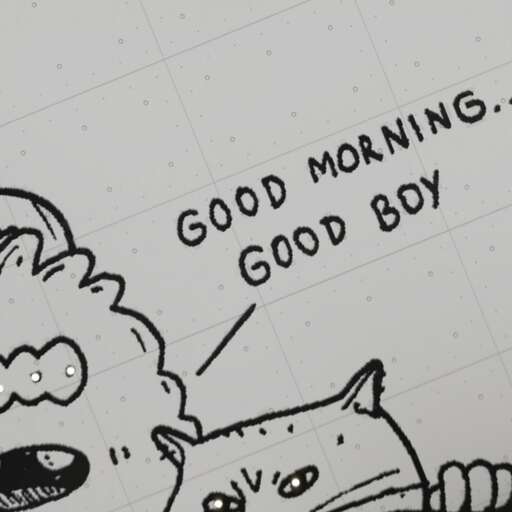 GOOD MORNING..
GOOD BOY